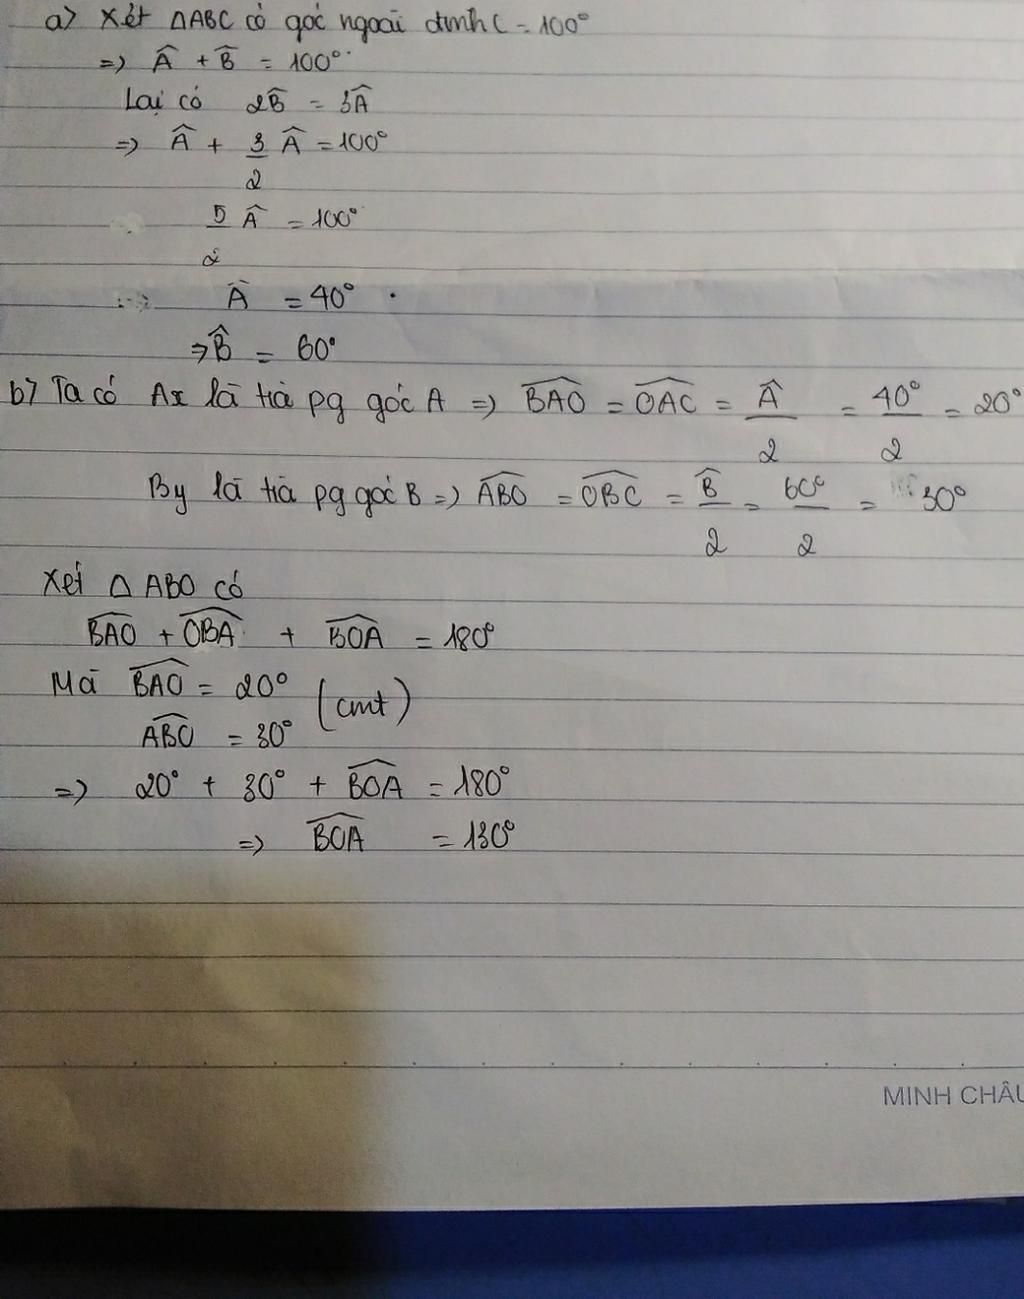 a) Xét ΔABC có góc ngoài đỉnh C = 100°
=> Â + B̂ = 100°
Lại có 2B̂ = 3Â
=> Â + 3/2 Â = 100°
5/2 Â = 100°
=> Â = 40°
=> B̂ = 60°
b) Ta có Ax là tia pg góc A => BAO = OAC = Â/2 = 40°/2 = 20°
By là tia pg góc B => ABO = OBC = B̂/2 = 60°/2 = 30°
Xét Δ ABO có
BAO + OBA + BOA = 180°
Mà BAO = 20° (cmt)
ABO = 30°
=> 20° + 30° + BOA = 180°
=> BOA = 130°
MINH CHÂU